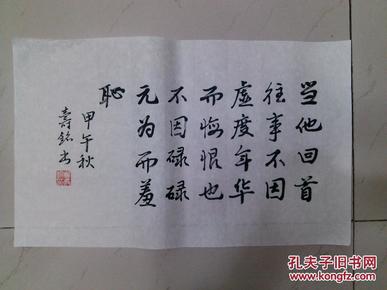 当他回首
往事不因
虚度年华
而悔恨也
不因碌碌
元为而羞
耻
甲午秋
寿铭书
孔夫子旧书网